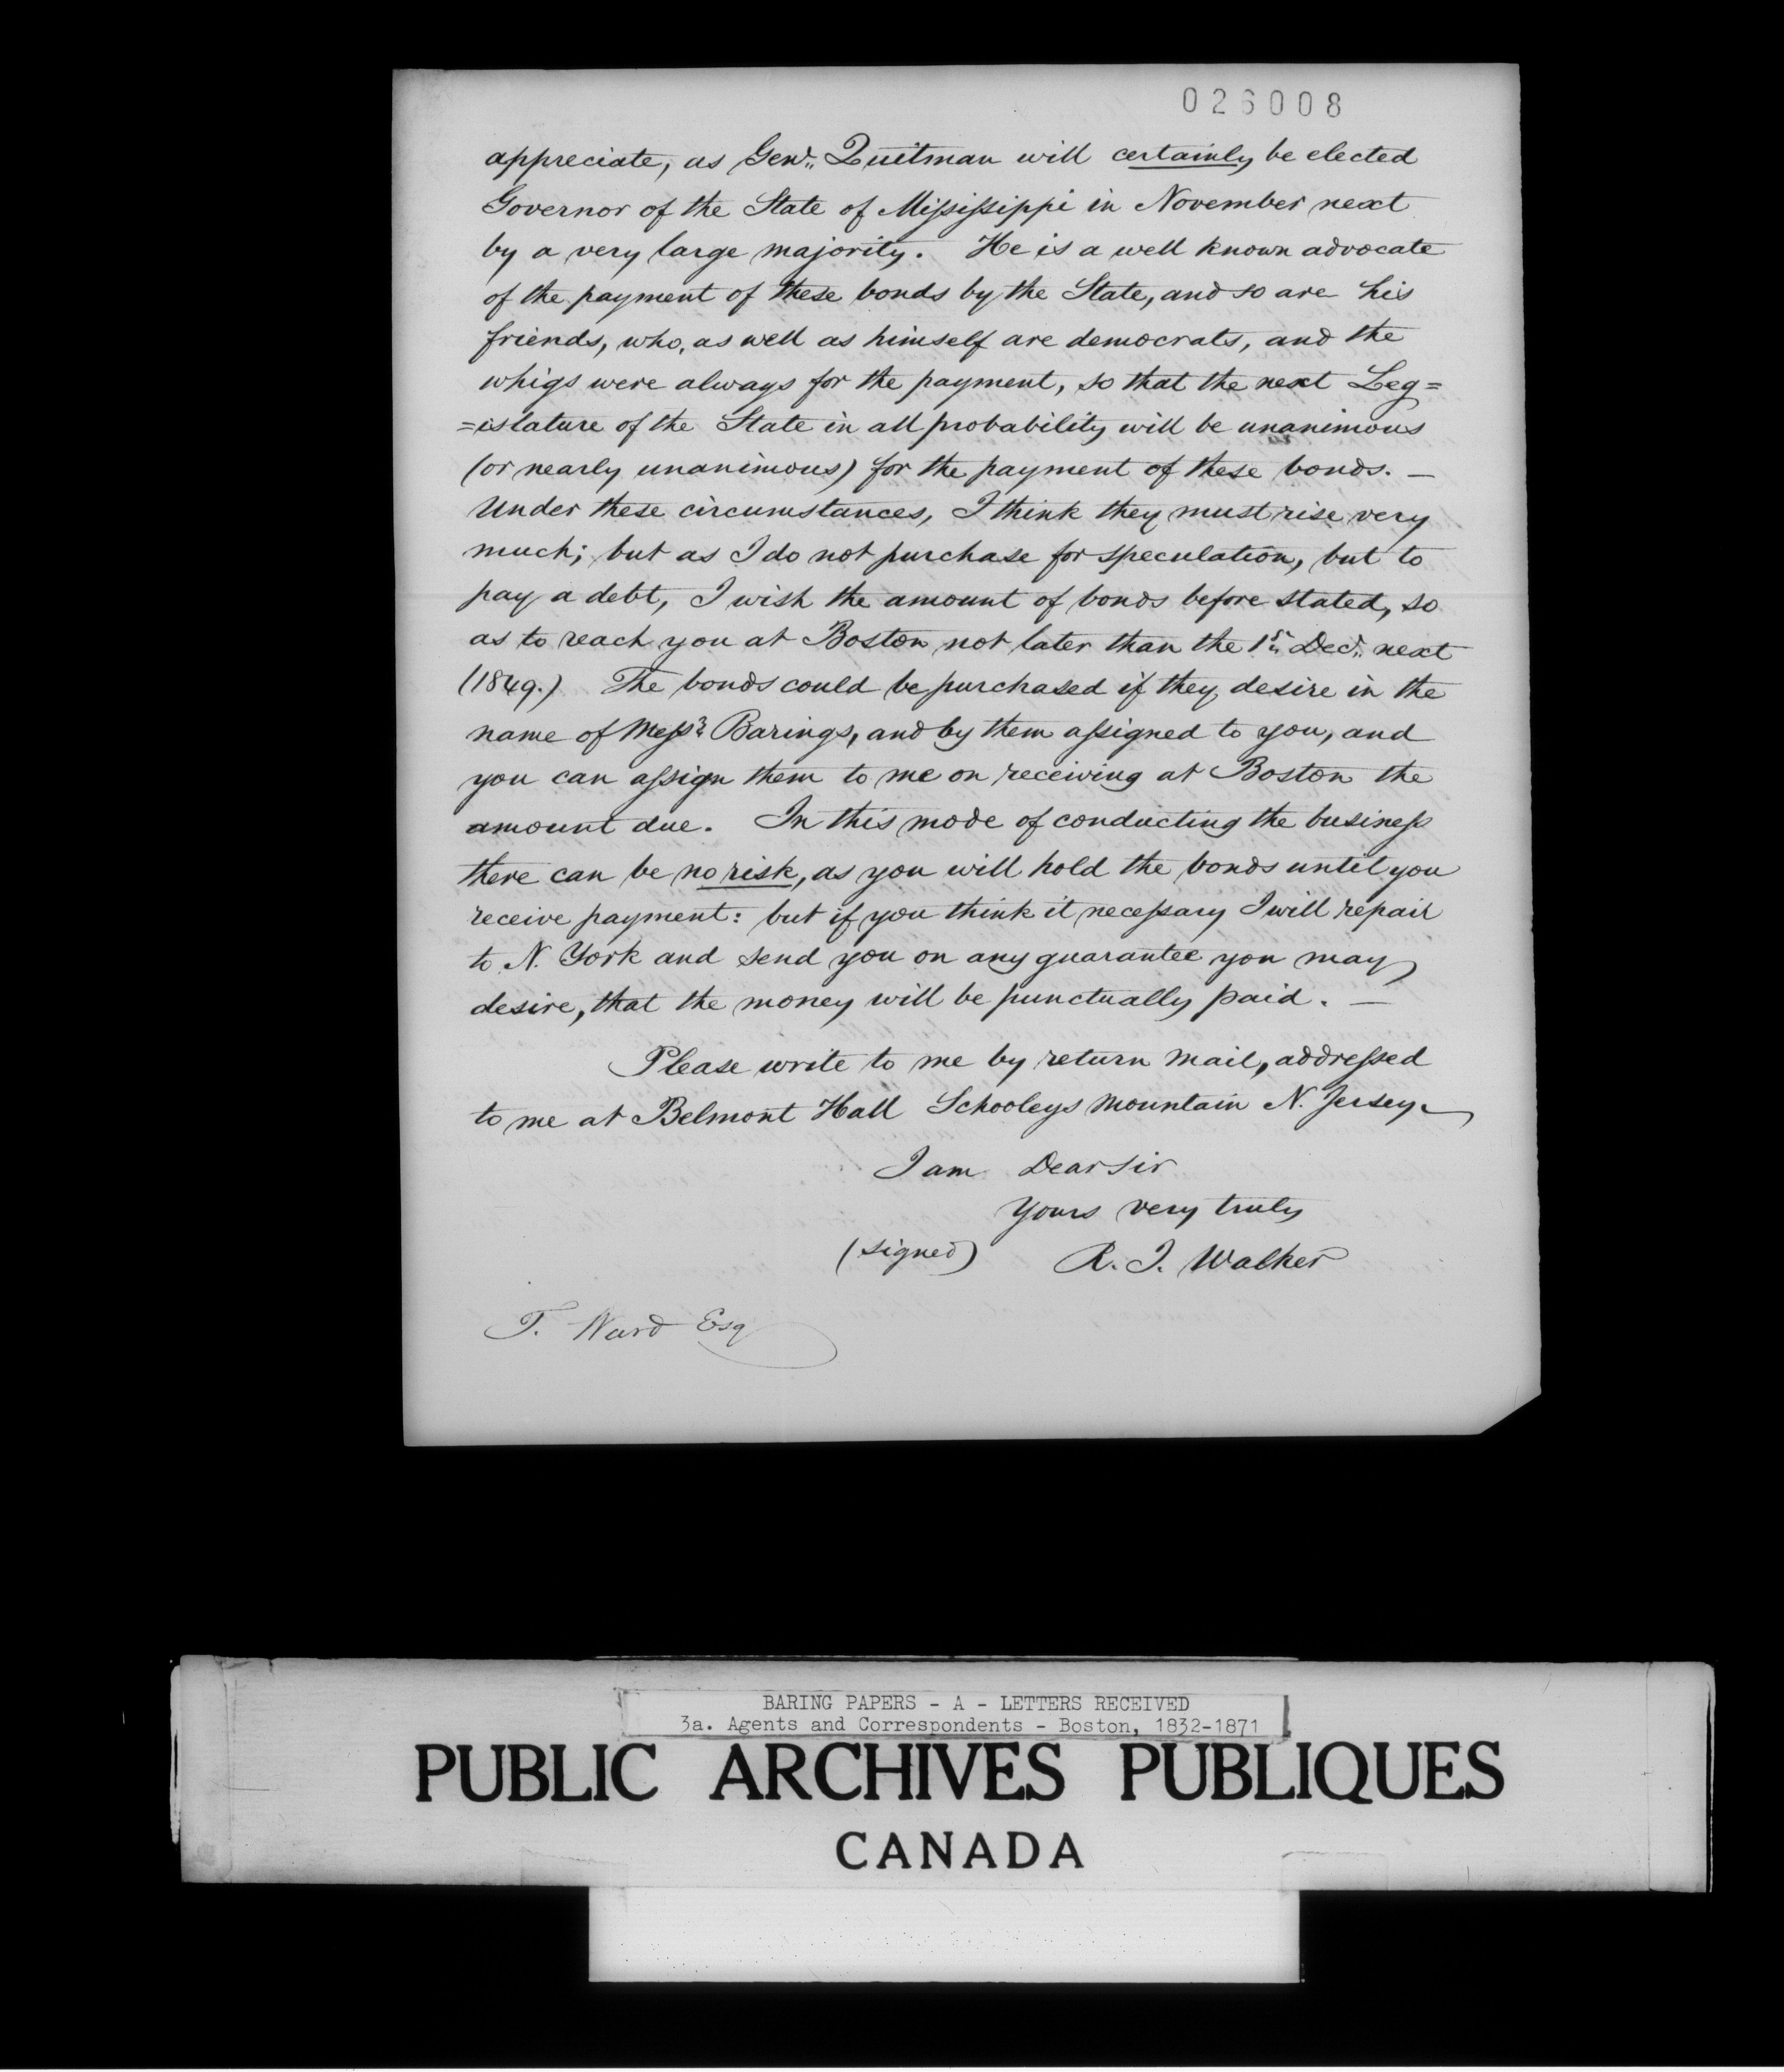 026008
appreciate, as Genl. Quitman will certainly be elected
Governor of the State of Mississippi in November next
by a very large majority. He is a well known advocate
of the payment of these bonds by the State, and so are his
friends, who, as well as himself are democrats, and the
whigs were always for the payment, so that the next Leg=
=islature of the State in all probability will be unanimous
(or nearly unanimous) for the payment of these bonds. —
Under these circumstances, I think they must rise very
much; but as I do not purchase for speculation, but to
pay a debt, I wish the amount of bonds before stated, so
as to reach you at Boston not later than the 1st Decr. next
(1849.) The bonds could be purchased if they desire in the
name of Messrs Barings, and by them assigned to you, and
you can assign them to me on receiving at Boston the
amount due. In this mode of conducting the business
there can be no risk, as you will hold the bonds until you
receive payment: but if you think it necessary I will repair
to N. York and send you on any guarantee you may
desire, that the money will be punctually paid. —
Please write to me by return mail, addressed
to me at Belmont Hall Schooleys Mountain N. Jersey.
I am Dear Sir
Yours very truly
(signed) R. J. Walker
T. Ward Esq
BARING PAPERS - A - LETTERS RECEIVED
3a. Agents and Correspondents - Boston, 1832-1871
PUBLIC ARCHIVES PUBLIQUES
CANADA